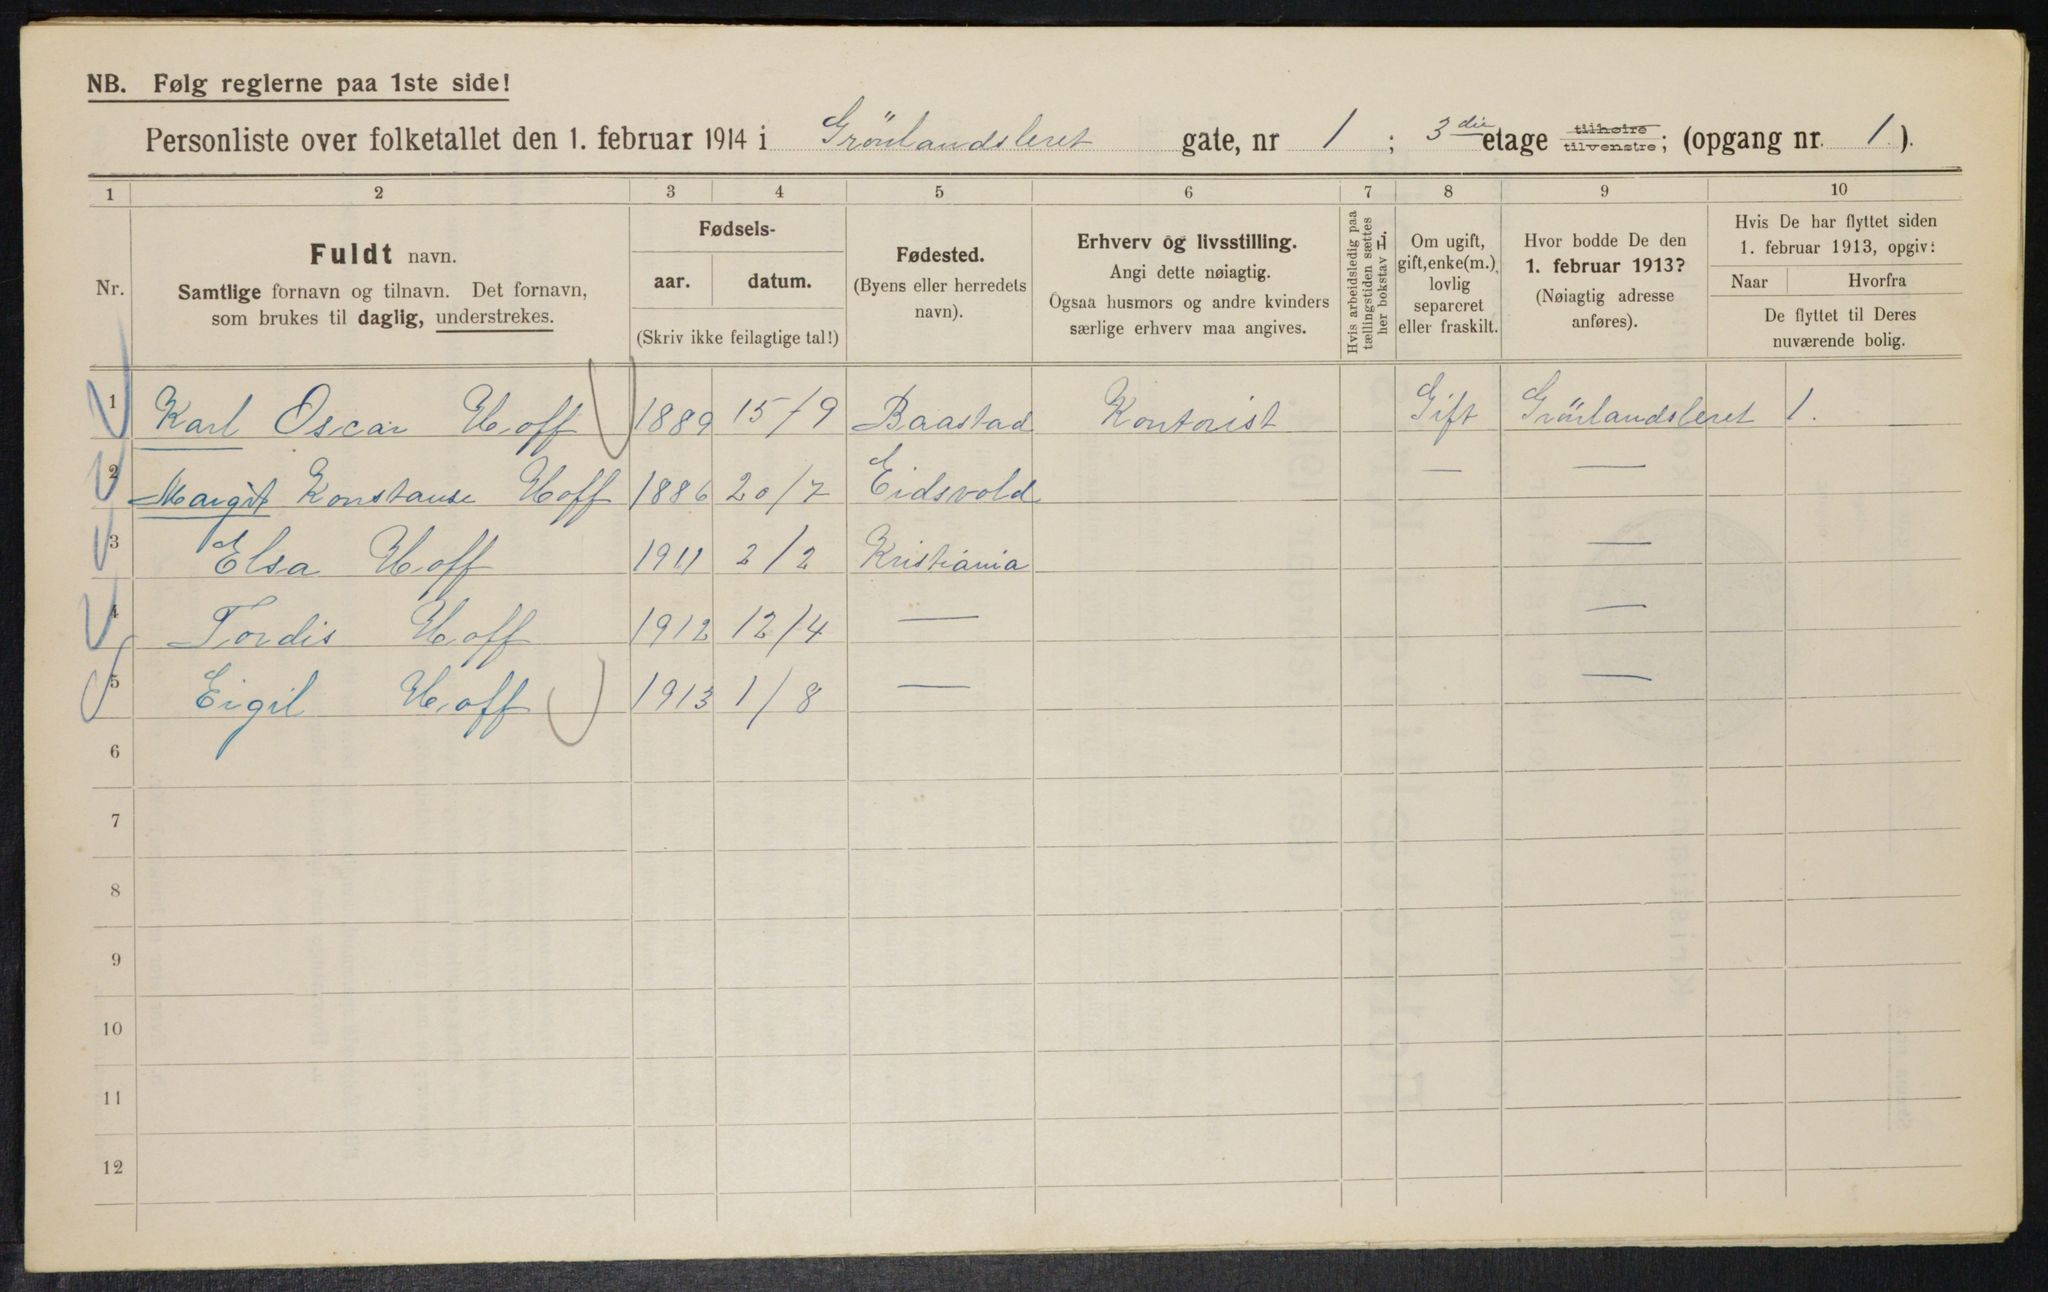 NB. Følg reglerne paa 1ste side!
Personliste over folketallet den 1. februar 1914 i Grönlandsleret gate, nr 1 ; 3die etage tilhøire tilvenstre; (opgang nr. 1.).
1 2 3 4 5 6 7 8 9 10
Nr.
Fuldt navn.
Samtlige fornavn og tilnavn. Det fornavn,
som brukes til daglig, understrekes.
Fødsels-
aar. datum.
(Skriv ikke feilagtige tal!)
Fødested.
(Byens eller herredets
navn).
Erhverv og livsstilling.
Angi dette nøiagtig.
Ogsaa husmors og andre kvinders
særlige erhverv maa angives.
Hvis arbeidsledig paa
tællingstiden sættes
her bokstav L.
Om ugift,
gift, enke(m.),
lovlig
separeret
eller fraskilt.
Hvor bodde De den
1. februar 1913?
(Nøiagtig adresse
anføres).
Hvis De har flyttet siden
1. februar 1913, opgiv:
Naar Hvorfra
De flyttet til Deres
nuværende bolig.
1 Karl Oscar Hoff 1889 15/9 Baastad Kontorist Gift Grönlandsleret 1.
2 Margit Konstanse Hoff 1886 20/7 Eidsvold — —
3 Elsa Hoff 1911 2/2 Kristiania —
4 Tordis Hoff 1912 12/4 — —
5 Eigil Hoff 1913 1/8 — —
6
7
8
9
10
11
12